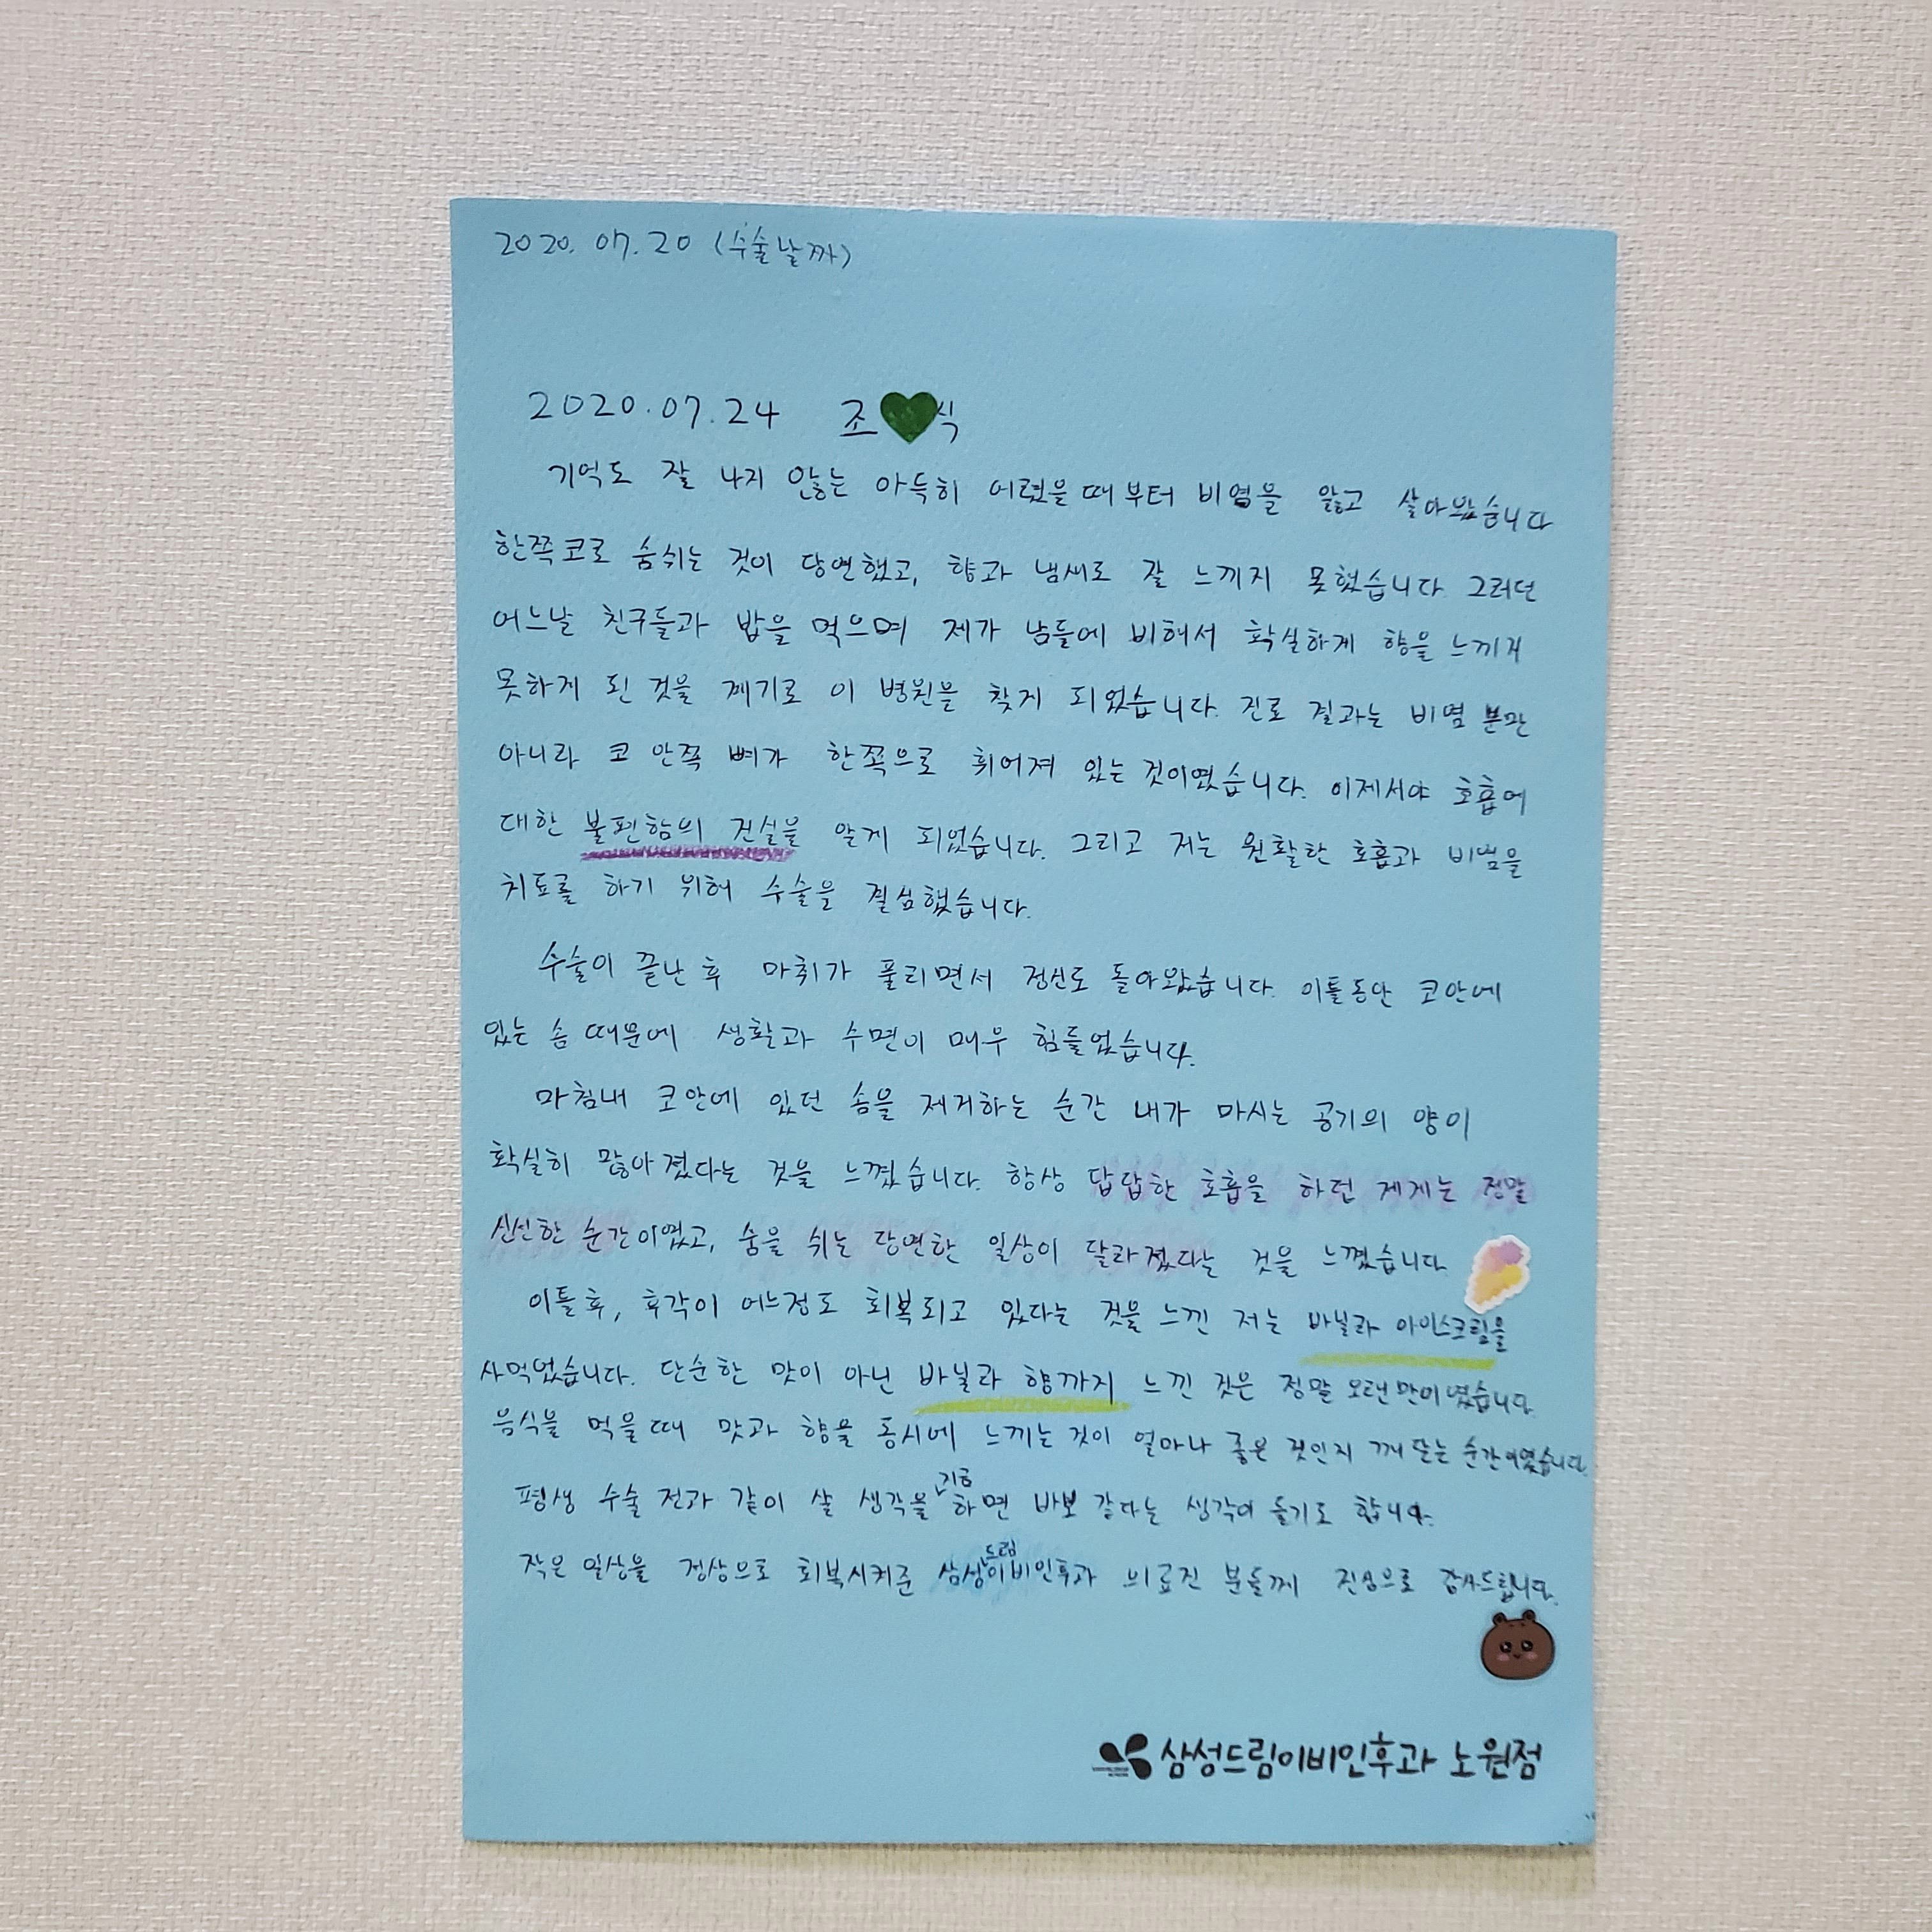 2020. 07. 20 (수술날짜)
2020. 07. 24 조 식
기억도 잘 나지 않는 아득히 어렸을 때부터 비염을 앓고 살아왔습니다
한쪽코로 숨쉬는 것이 당연했고, 향과 냄새로 잘 느끼지 못했습니다. 그러던
어느날 친구들과 밥을 먹으며 제가 남들에 비해서 확실하게 향을 느끼지
못하게 된 것을 계기로 이 병원을 찾게 되었습니다. 진료 결과는 비염 뿐만
아니라 코 안쪽 뼈가 한쪽으로 휘어져 있는 것이였습니다. 이제서야 호흡에
대한 불편함의 진실을 알게 되었습니다. 그리고 저는 원활한 호흡과 비염을
치료를 하기 위해 수술을 결심했습니다.
수술이 끝난 후 마취가 풀리면서 정신도 돌아왔습니다. 이틀동안 코안에
있는 솜 때문에 생활과 수면이 매우 힘들었습니다.
마침내 코안에 있던 솜을 제거하는 순간 내가 마시는 공기의 양이
확실히 많아졌다는 것을 느꼈습니다. 항상 답답한 호흡을 하던 제게는 정말
신선한 순간이였고, 숨을 쉬는 당연한 일상이 달라졌다는 것을 느꼈습니다
이틀 후, 후각이 어느정도 회복되고 있다는 것을 느낀 저는 바닐라 아이스크림을
사먹었습니다. 단순한 맛이 아닌 바닐라 향까지 느낀 것은 정말 오랜만이였습니다.
음식을 먹을때 맛과 향을 동시에 느끼는 것이 얼마나 좋은 것인지 깨닫는 순간이였습니다.
평생 수술 전과 같이 살 생각을 지금 하면 바보 같다는 생각이 들기도 합니다.
작은 일상을 정상으로 회복시켜준 삼성드림이비인후과 의료진 분들께 진심으로 감사드립니다.
삼성드림이비인후과 노원점